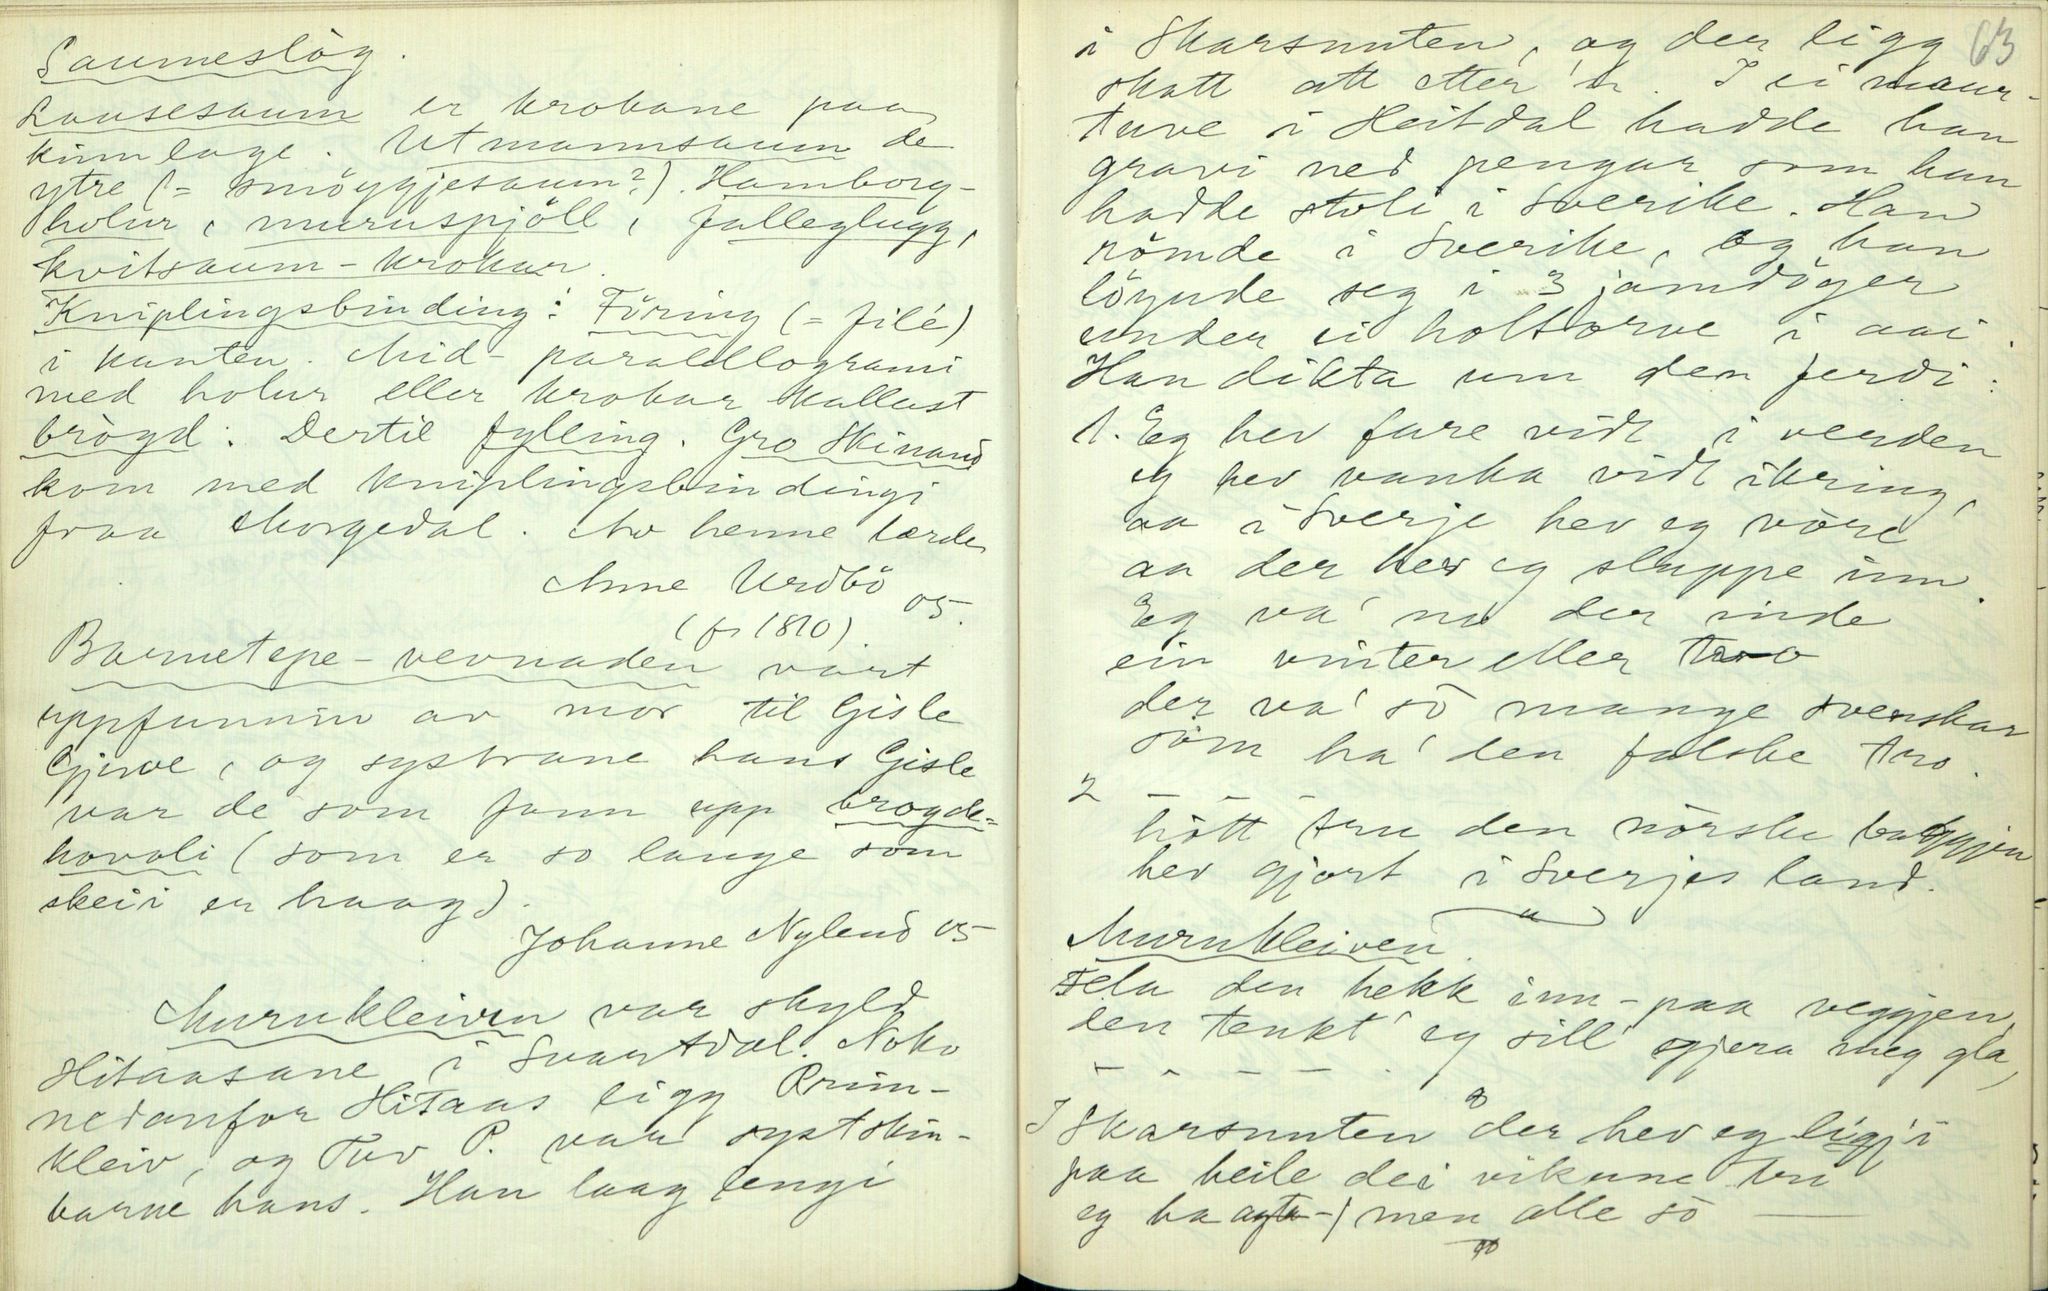 Saumeslög.
Lausesaum er krokane paa
kinnlage. Utmannsaum de
ytre (= smöyggjesaum?). Hamborg-
holur, muruspjöll, falleglugg,
kvitsaum-krokar.
Kniplingsbinding: Föring (= filé)
i kanten. Mid-paralellogrami
med holur eller krokar kallast
brögd. Dertil fylling. Gro Skinand
kom med kniplingsbindingi
fraa Morgedal. Av henne lærde
Anne Urdbö 05.
(f. 1810)
Barnetepe-vevnaden vart
uppfunnin av mor til Gisle
Gjerve, og systrane hans Gisle
var de som fann upp brogde-
hovoli (som er so lange som
skeii er haag).
Johanne Nylend 05
Murukleiven var skyld
Hitaasane i Svartdal. Noko
nedanfor Hitaas ligg Prim-
kleiv, og Tuv P. var systskin-
barne hans. Han laag lengi
63
i Skarsnuten, og der ligg
skatt att etter 'n. I ei maur-
tuve i Heitdal hadde han
gravi ned pengar som han
hadde stoli i Sverike. Han
römde i Sverike, og han
löynde seg i 3 jamdöger
under ei holtorve i aai.
Han dikta um den ferdi:
1. Eg hev fare vidt i verden
eg hev vanka vidt ikring,
aa i Sverje hev eg vöre
aa der hev eg sluppe inn.
Eg va' nu der inde
ein vinter eller two
der va' sö mange svenskar
söm ha' den falske tro.
2 – – –
hött tru den nörske baggjen
hev gjort i Sverjes land.
Murukleiven.
Fela den hekk inn-paa veggjen,
den tenkt' eg sill' gjera meg gla,
– – – – –
I Skarsnuten der hev eg ligji
paa heile dei vikune tri
eg ha agta –) men alle sö —